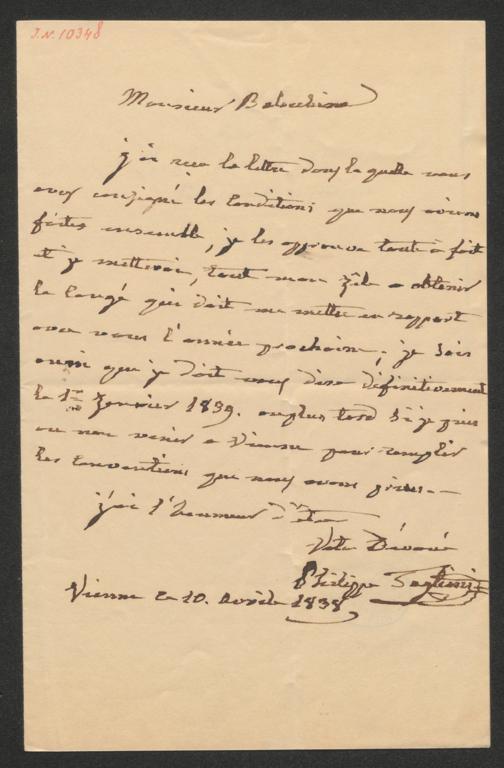 J.N. 10348
Monsieur Balochino
j'ai ressu la lettre dans la quelle vous
avez consigné les Conditions que nous avions
faites ensemble, je les approuve tout à fait
et je metterai, tout mon zèle a obtenir
le Congé qui doit me mettre en rapport
avec vous l'année prochaine, je sais
aussi que je doit vous dire définitivement
le 1er Janvier 1839. au plus tard si je puis
ou non venir a Vienne pour remplir
les Conventions que nous avons prises.—
j'ai l'honneur d'être
Votre Dévoué
Philippe Taglioni
Vienne Le 10. Avrile 1838